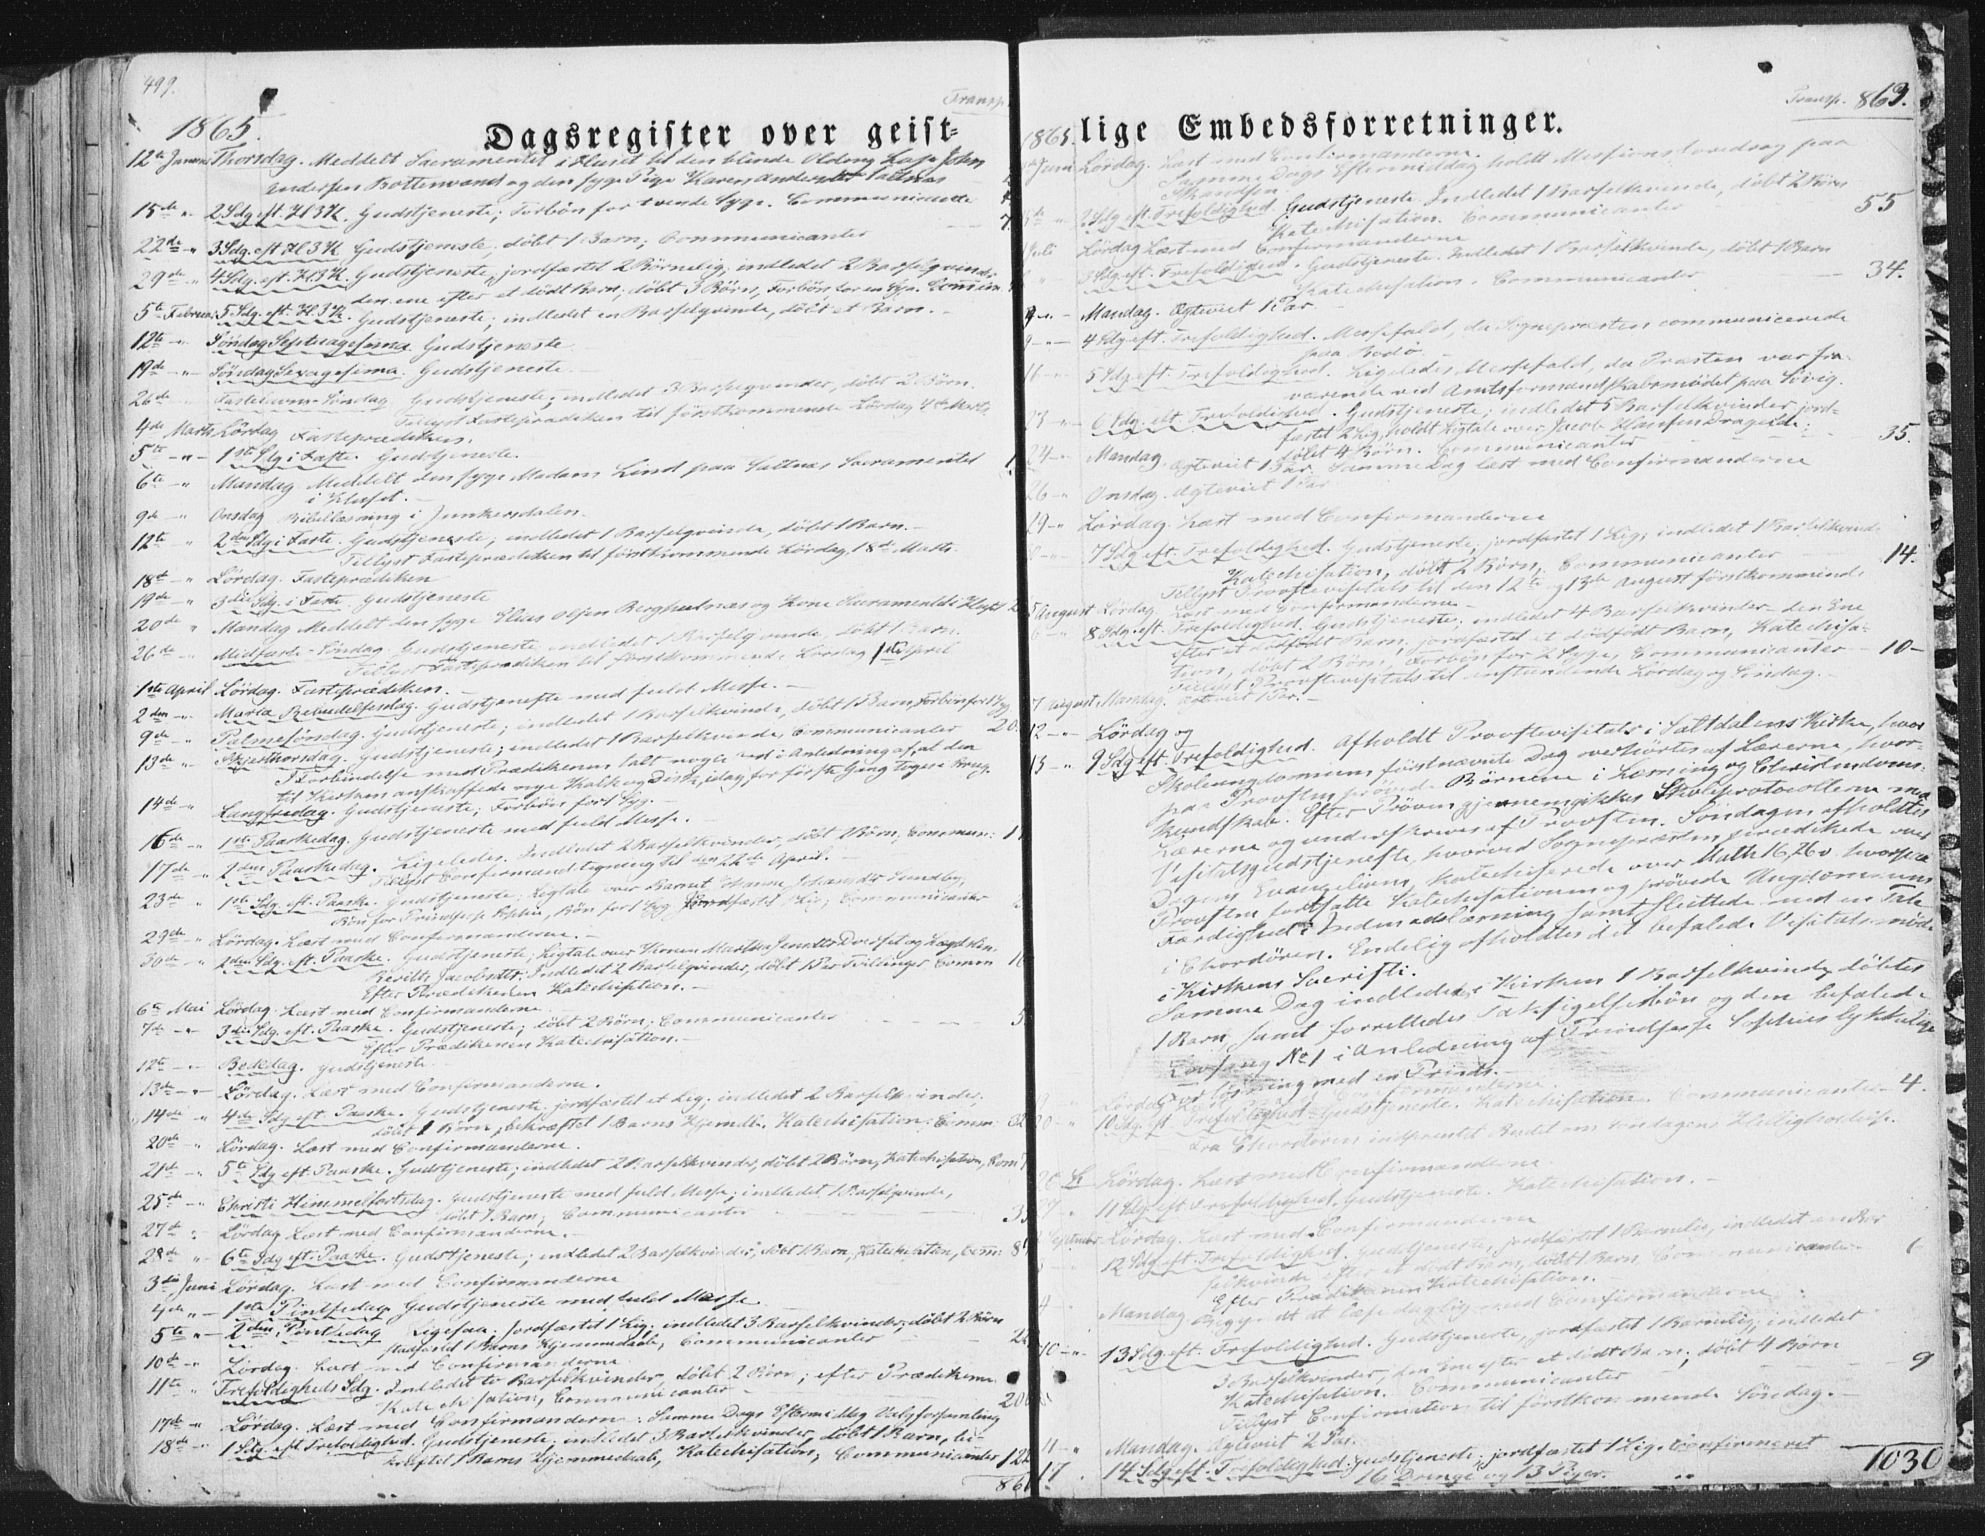 499.
Transp.
1865.
Dagsregister over geist=
12te Januar Thorsdag. Meddelt Sacramentet i Huset til den blinde Olding Lap John
Andersen Bottenvand og den syge Pige Karen Andersdtr Saltnæs
15de " 2 Sdg. eft. H.3K. Gudstjeneste; Forbøn for tvende Syge. Communicante 7
22de " 3 Sdg. eft H.3K. Gudstjeneste, døbt 1 Barn; Communicanter
29de " 4 Sdg. eft. H.3K. Gudstjeneste, jordfæstet 2 Børnelig, indledet 2 Barselqvinder
den ene efter et dødt Barn; døbt 3 Børn, Forbøn for en Syg. Commun.
5te Februar 5 Sdg. eft. H.3K. Gudstjeneste; indledet en Barselqvinde, døbt et Barn.
12te " Søndag Septuagesima Gudstjeneste
19de " Søndag Sexagesima. Gudstjeneste
26de " Fastelavns-Søndag Gudstjeneste; indledet 3 Barselqvinder, døbt 2 Børn.
Tillyst Fasteprædiken til førstkommende Lørdag 4de Marts
4de Marts Lørdag Fasteprædiken.
5te " 1ste Sdg i Faste. Gudstjeneste.
6te " Mandag Meddelt den syge Madam Lund paa Saltnæs Sacramentet
i Huset.
9de " Onsdag Bibellæsning i Junkersdalen.
12te " 2den Sdg i Faste. Gudstjeneste, indledet 1 Barselqvinde, døbt 1 Barn.
Tillyst Fasteprædiken til førstkommende Lørdag 18de Marts.
18de " Lørdag. Fasteprædiken
19de " 3die Sdg. i Faste. Gudstjeneste
20de " Mandag Meddelt den syge Elias Olsen Berghulnæs og Kone Sacramentet i Huset 2
26de " Midfaste-Søndag. Gudstjeneste, indledet 1 Barselqvinde, døbt 1 Barn.
Tillyst Fasteprædiken til førstkommende Lørdag 1ste April
1ste April Lørdag. Fasteprædiken.
2den " Mariæ Bebudelsesdag. Gudstjeneste med fuld Messe.
9de " Palmesøndag. Gudstjeneste; indledet 1 Barselkvinde, døbt 1 Barn, Forbøn for 1 Syg 20
13de " Skjærthorsdag. Gudstjeneste; indledet 1 Barselkvinde, Communicanter
I Forbindelse med Prædikenen talt nogle Ord i Anledning af, at den
til Kirken anskaffede nye Kalk og Disk, idag for første Gang toges i Brug.
14de " Langfredag. Gudstjeneste; Forbøn for 1 Syg.
16de " 1ste Paaskedag. Gudstjeneste med fuld Messe.
17de " 2den Paaskedag. Ligeledes. Indledet 2 Barselkvinder, døbt 2 Børn, Commun: 1
Tillyst Confirmandtegning til den 22de April.
23de " 1ste Sdg. eft. Paaske. Gudstjeneste; Ligtale over Barnet Johanna Johansdtr Sundby,
Bøn for Prindsesse Sophie, Bøn for 1 Syg Jordfæstet 1 Lig; Communicanter
29de " Lørdag. Læst med Confirmanderne.
30de " 2den Sdg. eft. Paaske. Gudstjeneste; Ligtale over Konen Martha Jensdtr Dverset og Lægdslem.
Berith Jacobsdtr; Indledet 2 Barselqvinder, døbt 1 Par Tvillinger Comm 16
Efter Prædikenen Katechisation.
6te Mai Lørdag. Læst med Confirmanderne
7de " 3die Sdg. eft. Paaske. Gudstjeneste; døbt 2 Børn; Communicanter 5
Efter Prædikenen Katechisation.
12te " Bededag. Gudstjeneste
13de " Lørdag. Læst med Confirmanderne.
14de " 4de Sdg eft Paaske. Gudstjeneste, jordfæstet et Lig; indledet 2 Barselkvinder.
døbt 1 Børn, bekræftet 1 Barns Hjemdb. Katechisation. Comm: 32
20de " Lørdag. Læst med Confirmanderne.
21de " 5te Sdg eft Paaske. Gudstjeneste; indledet 2 Barselkvinder, døbt 2 Børn, Katechisation, Com
25de " Christi Himmelfartsdag. Gudstjeneste med fuld Messe; indledet 1 Barselqvinde,
døbt 1 Barn; Communicanter 33
27de " Lørdag. Læst med Confirmanderne.
28de " 6te Sdg eft. Paaske. Gudstjeneste; indledet 2 Barselkvinder, døbt 1 Barn, Katechisation, Comm: 8
3die Juni Lørdag. Læst med Confirmanderne
4de " 1ste Pintsedag. Gudstjeneste med fuld Messe
5te " 2den Pintsedag Ligesaa. Jordfæstet 1 Lig. indledet 3 Barselkvinder; døbt 2 Børn
stadfæstet 1 Barns Hjemmedaab, Communicanter 22
10de " Lørdag. Læst med Confirmanderne
11te " Trefoldigheds Sdg. Indledet to Barselkvinder, døbt 2 Børn; efter Prædikenen
Katechisation, Communicanter 20
17de " Lørdag. Læst med Confirmanderne. Samme Dags Eftermiddag Valgforsamling
18de " 1 Sdg. eft Trefoldighed. Gudstjeneste. indledet 3 Barselkvinder, døbt 1 Barn, be-
kræftet 1 Barns Hjemmedaab, Katechisation, Communicanter 122
86
Transp. 863.
1865.
lige Embedsforretninger.
Juni Lørdag. Læst med Confirmanderne.
Samme Dags Eftermiddag holdt Missionsforedrag paa
2 Sdg eft. Trefoldighed. Gudstjeneste. Indledet 1 Barselkvinde, døbt 2 Børn
Katechisation. Communicanter 55
Juli Lørdag Læst med Confirmanderne
3 Sdg. eft. Trefoldighed. Gudstjeneste. Indledet 1 Barselkvinde, døbt 1 Barn
Katechisation. Communicanter 34.
Mandag. Ægteviet 1 Par
9 " 4 Sdg. eft. Trefoldighed. Messefald, da Sognepræsten communicerede
paa Bodø.
16 " 5 Sdg. eft. Trefoldighed. Ligeledes Messefald, da Præsten var fra-
værende ved Amtsformandskabsmødet paa Løvig.
23 " 6 Sdg. eft. Trefoldighed. Gudstjeneste; indledet 5 Barselkvinder, jord-
fæstet 2 Lig, holdt Ligtale over Jacob Hansen Drageide:
døbt 4 Børn. Communicanter 35.
24 " Mandag. Ægteviet 1 Par. Samme Dag læst med Confirmanderne
26 " Onsdag. Ægteviet 1 Par
29 " Lørdag. Læst med Confirmanderne
7 Sdg. eft. Trefoldighed. Gudstjeneste, jordfæstet 1 Lig; indledet 1 Barselkvinde
Katechisation, døbt 2 Børn, Communicanter 14.
Tillyst Provstevisitats til den 12te og 13de August førstkommende
5 August Lørdag. Læst med Confirmanderne
6 " 8 Sdg. eft. Trefoldighed. Gudstjeneste; indledet 4 Barselkvinder den Ene
efter et dødfødt Barn, jordfæstet et dødfødt Barn, Katechisa-
tion, døbt 2 Børn, Forbøn for 2 Syge, Communicanter 10
Tillyst Provstevisitats til instundende Lørdag og Søndag.
7 August. Mandag. Ægteviet 1 Par.
12 " Lørdag og
13 " 9 Sdg. eft. Trefoldighed. Afholdt Provstevisitats i Saltdalens Kirke, hvor
Skoleungdommen førstnævnte Dag overhørtes af Lærerne, hvor-
paa Provsten prøvede Børnene i Læsning og Christendoms-
kundskab. Efter Prøven gjennemgikkes Skoleprotocollerne med
Lærerne og underskreves af Provsten. Søndagen afholdtes
Visitatsgudstjeneste, hvorved Sognepræsten prædikede over
Dagens Evangelium, Katechiserede over Math 16,26v. hvorpaa
Provsten fortsatte Katechisationen og prøvede Ungdommens
Færdighed i Indenadslæsning samt sluttede med en Tale
i Chordøren. Endelig afholdtes det befalede Visitatsmøde
i Kirkens Sacristi.
Samme Dag indlededes i Kirken 1 Barselkvinde, døbtes
1 Barn samt forrettedes Taksigelsesbøn og den befalede
Lovsang No 1 i Anledning af Prindsesse Sophies lykkelige
Forløsning med en Prinds.
Lørdag. Læst med Confirmanderne
20 " 10 Sdg. eft. Trefoldighed Gudstjeneste. Katechisation. Communicanter 4.
Fra Chordøren indprentet Budet om Søndagens Helligholdelse.
26 " Lørdag. Læst med Confirmanderne.
27 " 11 Sdg. eft Trefoldighed. Gudstjeneste. Katechisation.
September Lørdag. Læst med Confirmanderne
3 " 12 Sdg. eft. Trefoldighed. Gudstjeneste, jordfæstet 1 Barnelig, indledet en Bar
selkvinde efter et dødt Barn, døbt 1 Barn, Communicanter
Efter Prædikenen Katechisation.
4 " Mandag. Begyndt at læse daglig med Confirmanderne
10 " 13 Sdg. eft. Trefoldighed. Gudstjeneste, jordfæstet 1 Barnelig, indledet
3 Barselkvinder, den Ene efter et dødt Barn; døbt 4 Børn
Katechisation. Communicanter 9
Tillyst Confirmation til førstkommende Søndag.
11 " Mandag. Ægteviet 2 Par.
17 " 14 Sdg. eft. Trefoldighed. Gudstjeneste; jordfæstet 1 Lig. Confirmeret
16 Drenge og 13 Piger.
1030